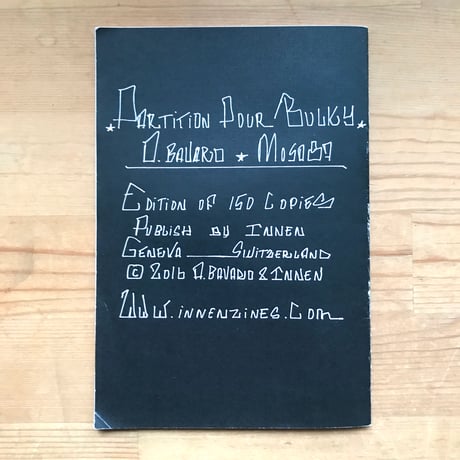 ★Partition Pour Bulky★
D. Bavaro ★ Moso
Edition of 150 Copies
Publish by Innen
Geneva Switzerland
© 2016 D. Bavaro & Innen
www.innenzines.com